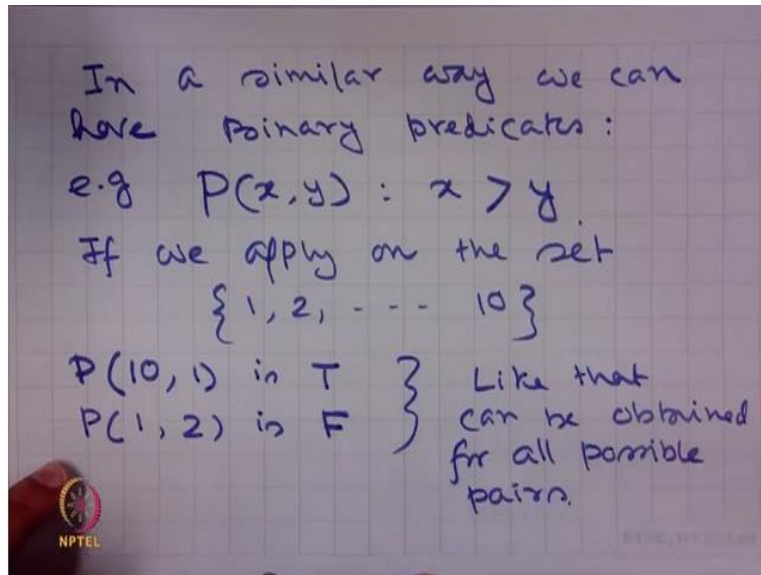 In a similar way we can
have Binary predicates:
e.g P(x,y) : x > y.
If we apply on the set
{1, 2, - - - 10}
P(10, 1) is T } Like that
P(1, 2) is F } can be obtained
for all possible
pairs.
NPTEL